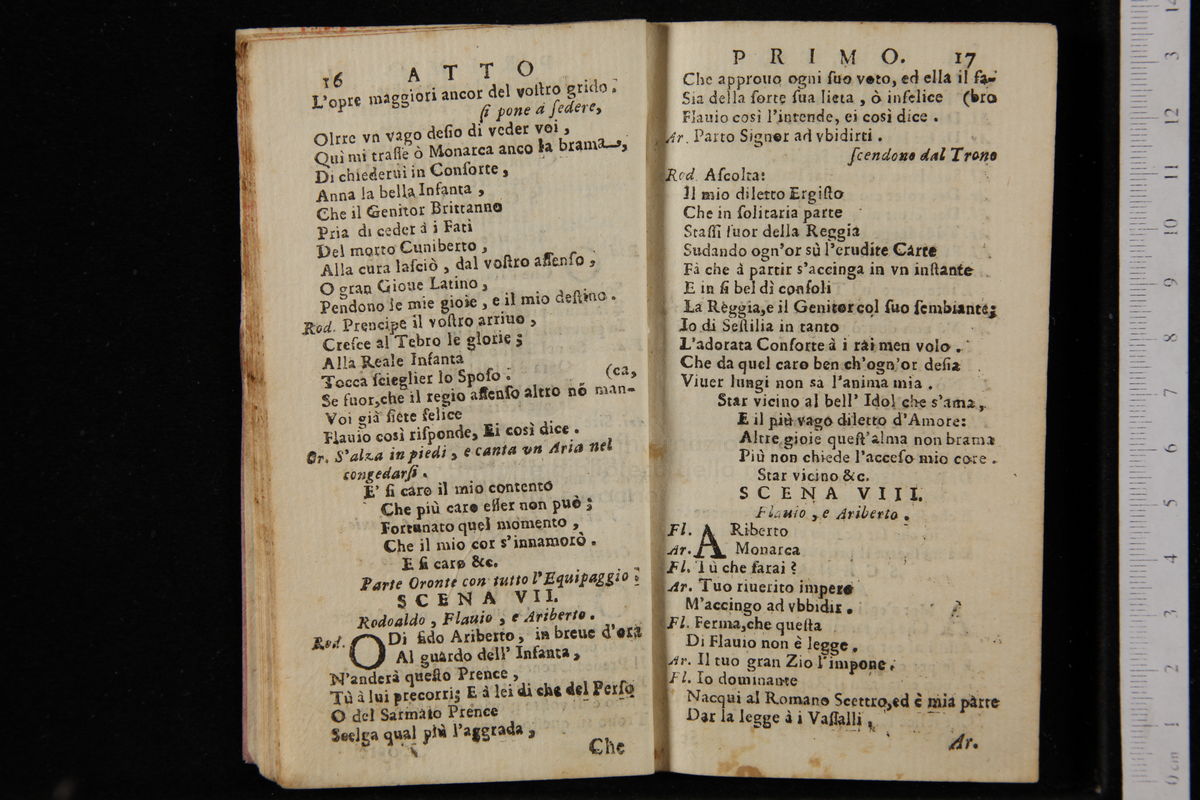 16 ATTO
L'opre maggiori ancor del voſtro grido.
ſi pone à ſedere,
Olrre vn vago deſio di veder voi,
Quì mi traſſe ò Monarca anco la brama,
Di chiederui in Conſorte,
Anna la bella Infanta,
Che il Genitor Brittanno
Pria di ceder à i Fati
Del morto Cuniberto,
Alla cura laſciò, dal voſtro aſſenſo,
O gran Gioue Latino,
Pendono le mie gioie, e il mio deſtino.
Rod. Prencipe il voſtro arriuo,
Creſce al Tebro le glorie;
Alla Reale Infanta
Tocca ſcieglier lo Spoſo: (ca,
Se fuor, che il regio aſſenſo altro nō man-
Voi già ſiete felice
Flauio così riſponde, Ei così dice.
Or. S'alza in piedi, e canta vn Aria nel
congedarſi.
E' ſi caro il mio contento
Che più caro eſſer non può;
Fortunato quel momento,
Che il mio cor s'innamorò.
E ſi caro &c.
Parte Oronte con tutto l'Equipaggio:
SCENA VII.
Rodoaldo, Flauio, e Ariberto.
Rod. ODi fido Ariberto, in breue d'ora
Al guardo dell' Infanta,
N'anderà queſto Prence,
Tù à lui precorri; E à lei di che del Perſo
O del Sarmato Prence
Scelga qual più l'aggrada,
Che
PRIMO. 17
Che approuo ogni ſuo voto, ed ella il fa-
Sia della ſorte ſua lieta, ò infelice (bro
Flauio così l'intende, ei così dice.
Ar. Parto Signor ad vbidirti.
ſcendono dal Trono
Rod. Aſcolta:
Il mio diletto Ergiſto
Che in ſolitaria parte
Staſſi fuor della Reggia
Sudando ogn'or sù l'erudite Carte
Fà che à partir s'accinga in vn inſtante
E in ſi bel dì conſoli
La Règgia, e il Genitor col ſuo ſembiante;
Io di Seſtilia in tanto
L'adorata Conſorte à i rai men volo.
Che da quel caro ben ch'ogn'or deſia
Viuer lungi non sa l'anima mia.
Star vicino al bell' Idol che s'ama,
E il più vago diletto d'Amore:
Altre gioie queſt'alma non brama
Più non chiede l'acceſo mio core.
Star vicino &c.
SCENA VIII.
Flauio, e Ariberto.
Fl. ARiberto
Ar. Monarca
Fl. Tù che farai?
Ar. Tuo riuerito impero
M'accingo ad vbbidir.
Fl. Ferma, che queſta
Di Flauio non è legge.
Ar. Il tuo gran Zio l'impone.
Fl. Io dominante
Nacqui al Romano Scettro, ed è mia parte
Dar la legge à i Vaſſalli,
Ar.